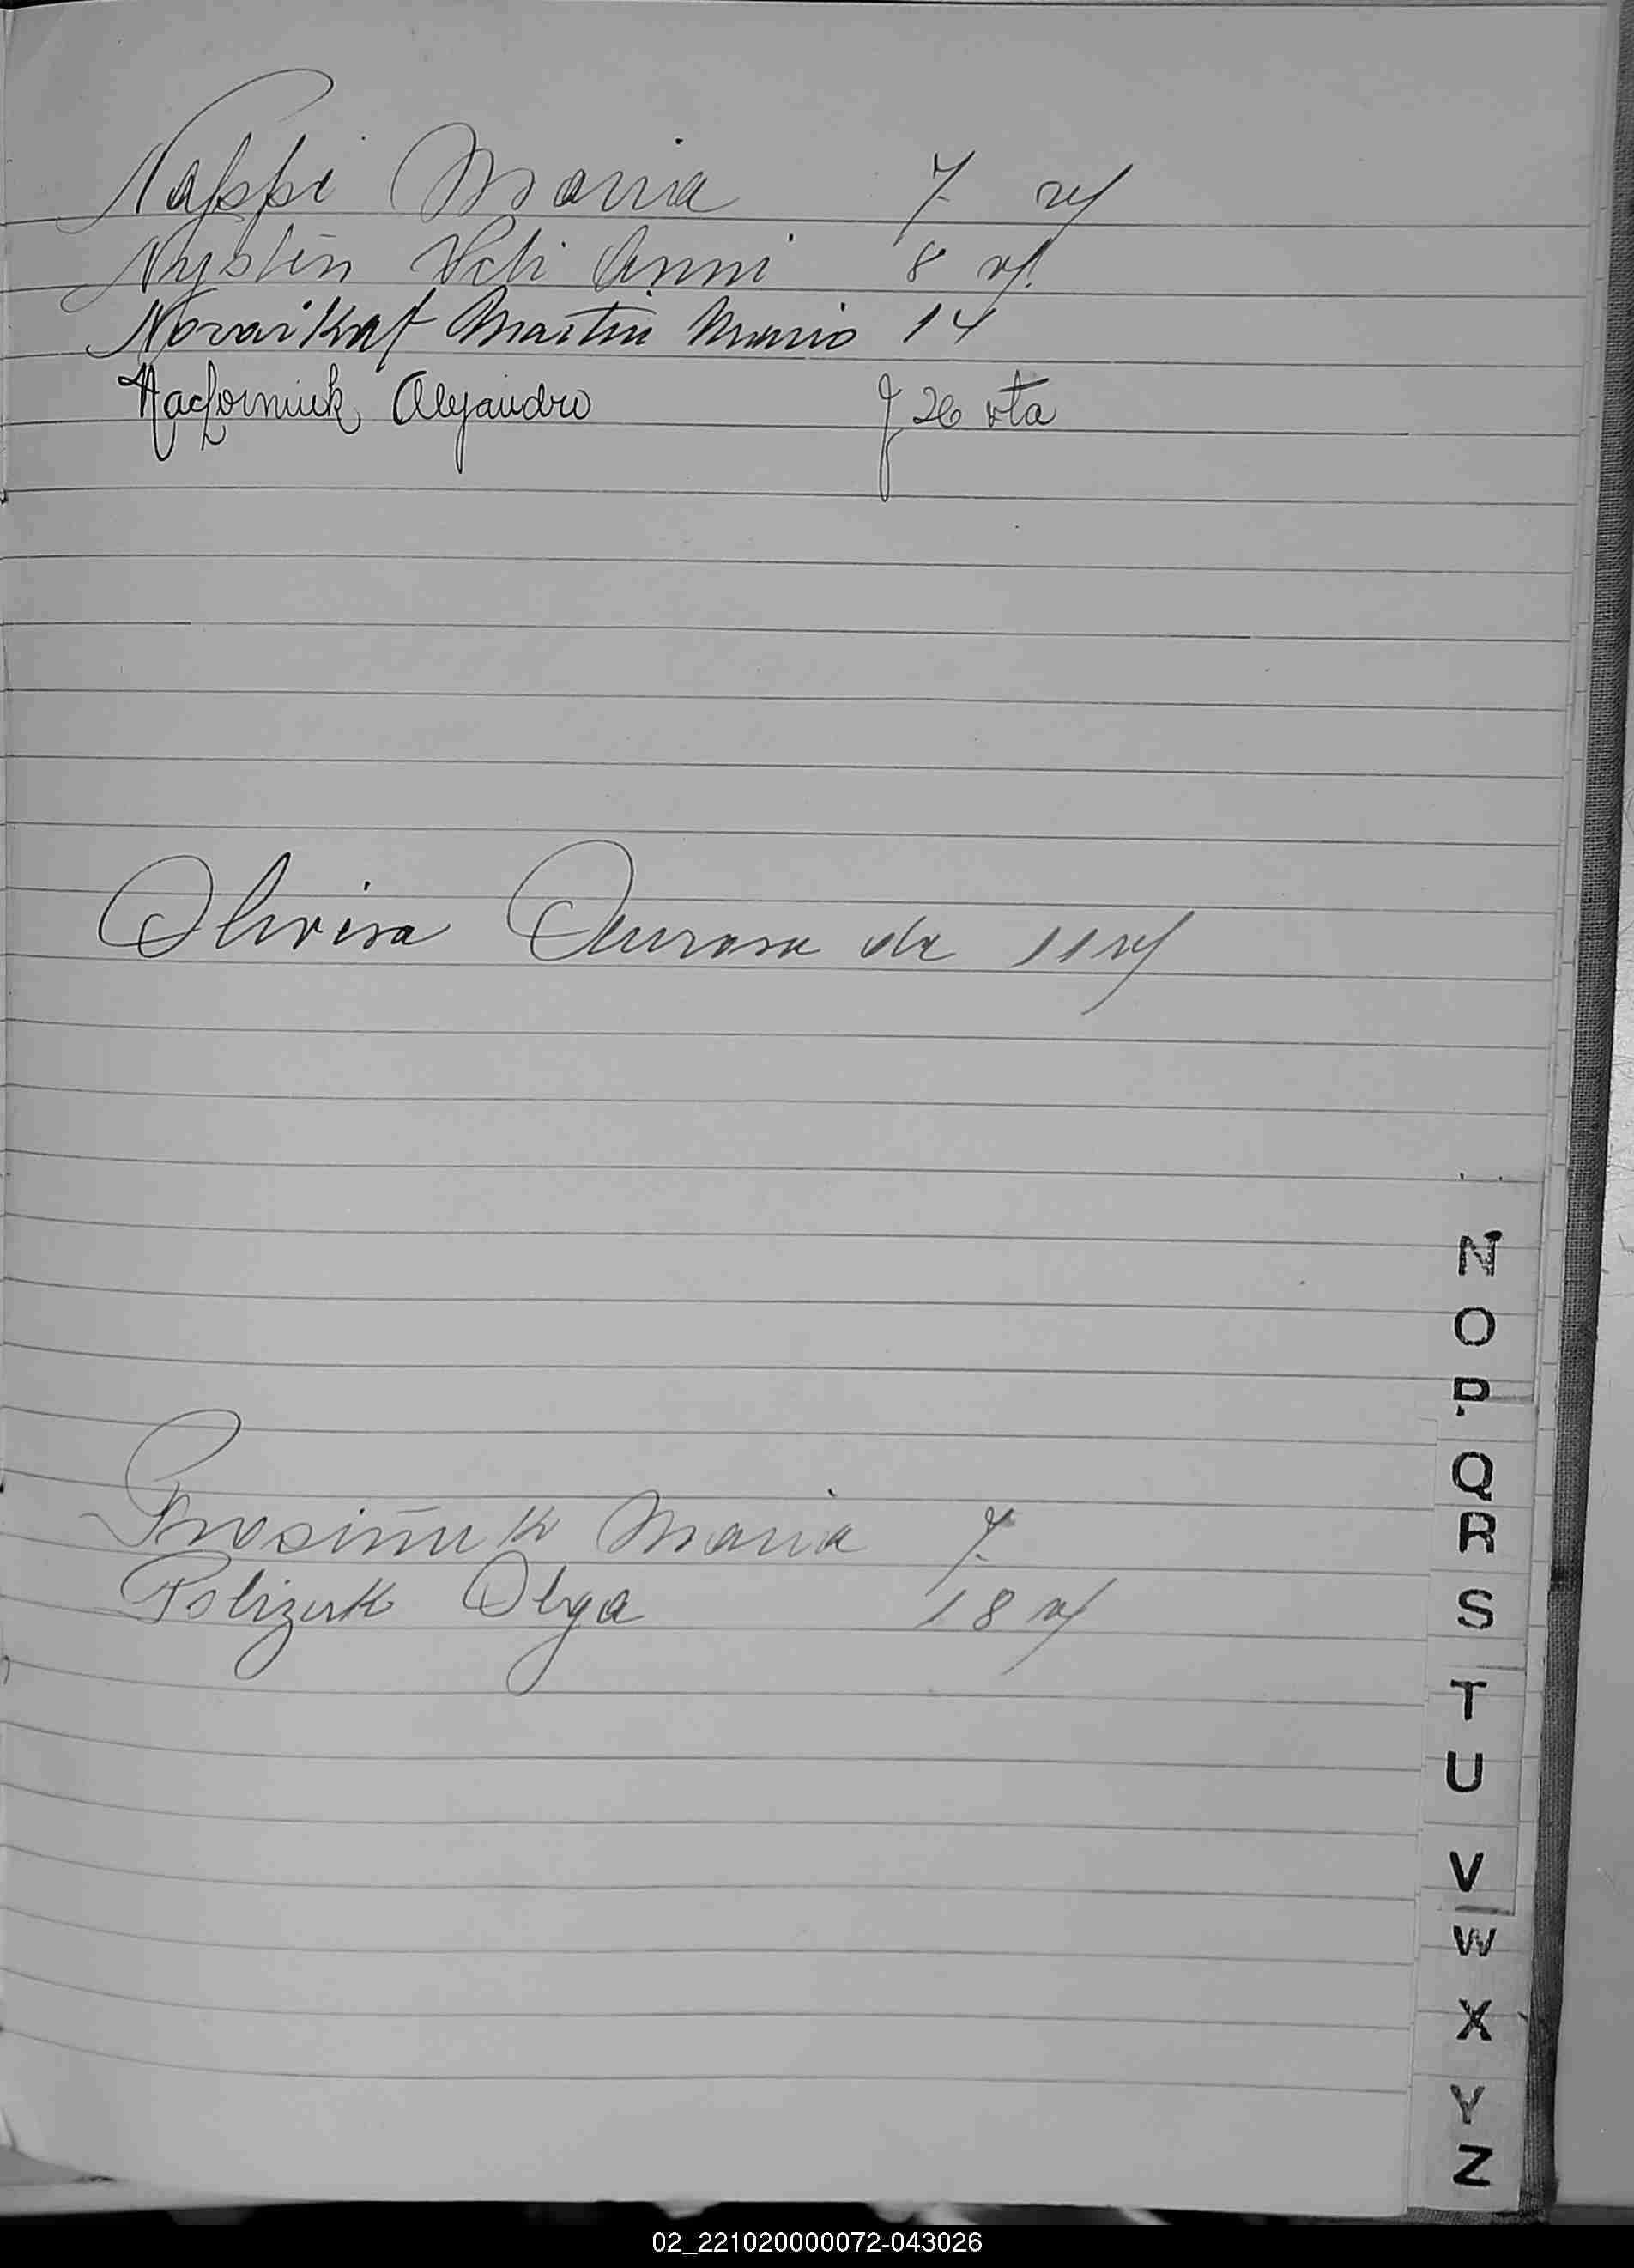 Nappi Maria 7. vf
Nystēn Veli Anni 8 vf.
Novarikat Martin Mario 14
Nachorniuk Alejandro f 26 vta
Olivera Aurora de 11 vf
Prosiñuk Maria 7.
Polizuk Olga 18 vf
N
O
P
Q
R
S
T
U
V
W
X
Y
Z
02_221020000072-043026